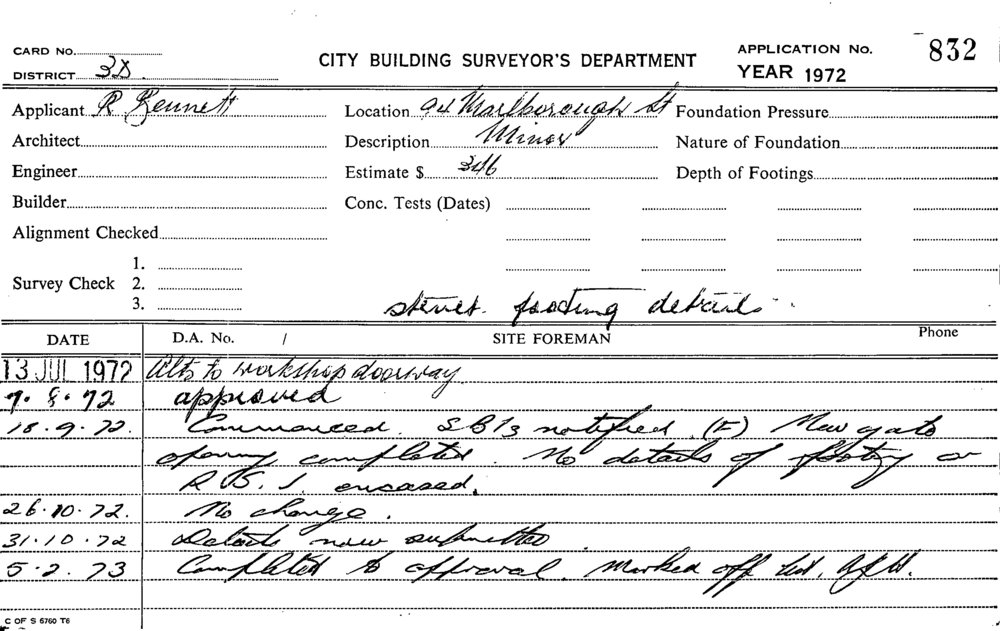 CARD No.
DISTRICT 3D.
CITY BUILDING SURVEYOR'S DEPARTMENT
APPLICATION No. 832
YEAR 1972
Applicant R Kennett
Location 94 Marlborough St
Foundation Pressure
Architect
Description Minor
Nature of Foundation
Engineer
Estimate $ 346
Depth of Footings
Builder
Conc. Tests (Dates)
Alignment Checked
Survey Check 1.
2.
3.
struct. footing details
DATE D.A. No. / SITE FOREMAN Phone
13 JUL 1972 Alts to workshop doorway
7.8.72 approved
18.9.72. Commenced. notified. New gate
opening completed. No details of footing or
encased.
26.10.72. No change.
31.10.72 Details now submitted
5.2.73 Completed to approval. Marked off list.
C OF S 6760 T6